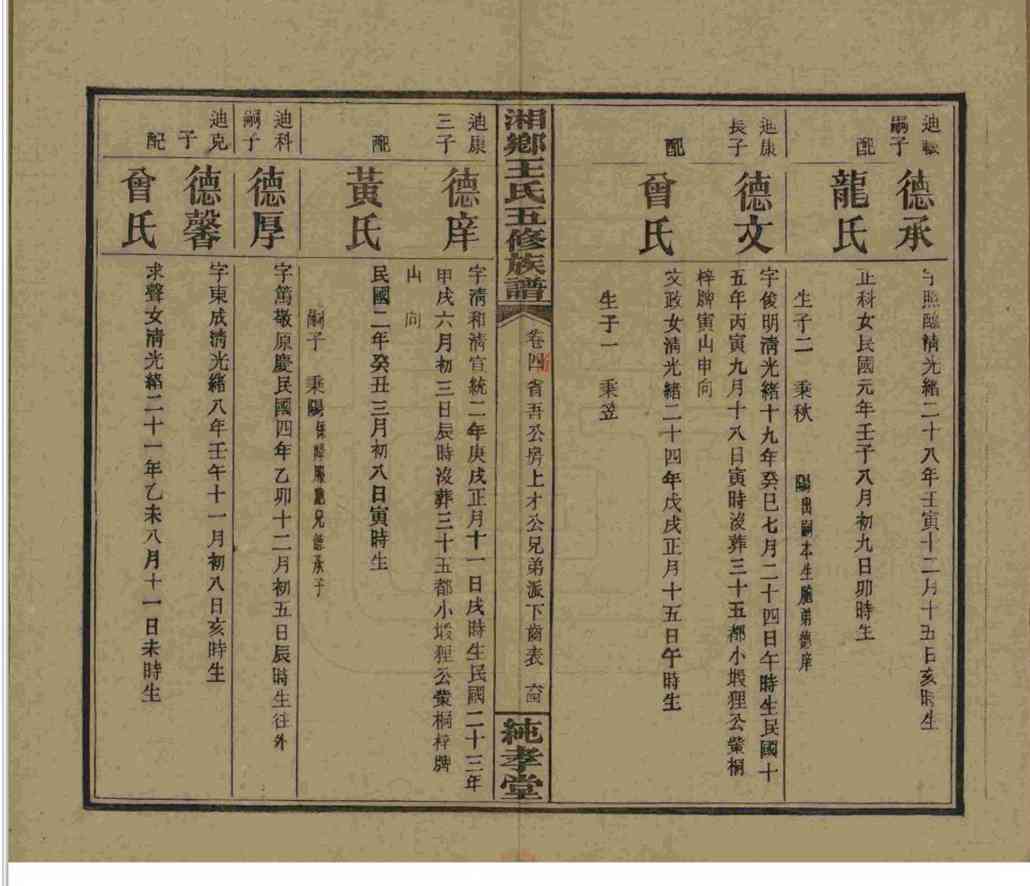 迪
嗣子
德承
字照 清光緒二十八年壬寅十二月十五日亥時生
配
龍氏
正科女民國元年壬子八月初九日卯時生
生子二 秉秋 陽出嗣本生胞弟德庠
迪康
長子
德文
字俊明清光緒十九年癸巳七月二十四日午時生民國十
五年丙寅九月十八日寅時沒葬三十五都小塅狸公塋桐
梓牌寅山申向
配
曾氏
文政女清光緒二十四年戊戌正月十五日午時生
生子一 秉笠
湘鄉王氏五修族譜
卷四 省吾公房上才公兄弟派下齒表
純孝堂
迪康
三子
德庠
字清和清宣統二年庚戌正月十一日戌時生民國二十三年
甲戌六月初三日辰時沒葬三十五都小塅狸公塋桐梓牌
山 向
配
黃氏
民國二年癸丑三月初八日寅時生
嗣子 秉陽 胞兄德承子
迪科
嗣子
德厚
字篤敬原慶民國四年乙卯十二月初五日辰時生往外
迪克
子
德馨
字東成清光緒八年壬午十一月初八日亥時生
配
曾氏
求聲女清光緒二十一年乙未八月十一日未時生